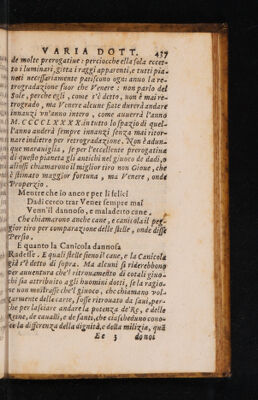 VARIA DOTT. 437
de molte prerogative: perciocche ella sola eccet-
to i luminari, gitta i raggi apparenti, e tutti pia-
neti necessariamente patiscono ogni anno la re-
trogradazione fuor che Venere: non parlo del
Sole, perche egli, come s'è detto, non è mai re-
trogrado, ma Venere alcune fiate durerà andare
innanzi vn'anno intero, come auuerrà l'anno
M. CCCCLXXXX. in tutto lo spazio di quel-
l'anno anderà sempre innanzi senza mai ritor-
nare indietro per retrogradazione. Non è adun-
que marauiglia, se per l'eccellente prerogatiua
di questo pianeta gli antichi nel giuoco de' dadi, o
aliossi chiamarono il miglior tiro non Gioue, che
è stimato maggior fortuna, ma Venere, onde
Properzio.
Mentre che io aneo e per li felici
Dadi cerco trar Vener sempre mai
Venn'il dannoso, e maladetto cane,
Che chiamarono anche cane, e canicola il peg-
gior tiro per comparazione delle stelle, onde disse
Persio.
E quanto la Canicola dannosa
Radesse. E quali stelle sieno il cane, e la Canicola
già s'è detto di sopra. Ma alcuni si riderebbono
per auuentura che'l ritrouamento di cotali giuo-
chi sia attribuito agli huomini dotti, se la ragio-
ne non mostrasse che'l giuoco, che chiamano vol-
garmente delle carte, fosse ritrouato da saui, per-
che per lasciare andare la potenza de'Re, e delle
Reine, de caualli, e de fanti, che ciascheduno cono-
ce la differenza della dignità, e della milizia, quã
Ee 3 do noi